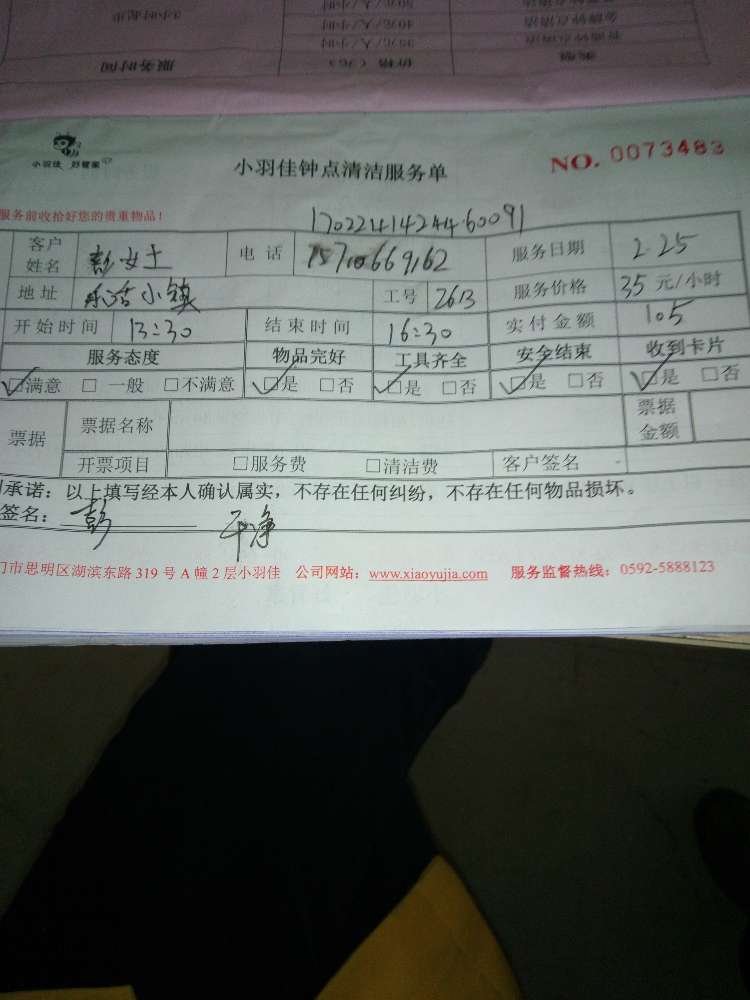 小羽佳 好管家
小羽佳钟点清洁服务单
NO. 0073483
服务前收拾好您的贵重物品!
17022414244460091
客户姓名 彭女士 电话 15710669162 服务日期 2.25
地址 乐活小镇 工号 2613 服务价格 35 元/小时
开始时间 13:30 结束时间 16:30 实付金额 105
服务态度 物品完好 工具齐全 安全结束 收到卡片
☑满意 □ 一般 □不满意 ☑是 □否 ☑是 □否 ☑是 □否 ☑是 □否
票据 票据名称 票据金额
开票项目 □服务费 □清洁费 客户签名
承诺: 以上填写经本人确认属实,不存在任何纠纷,不存在任何物品损坏。
签名: 彭 干净
门市思明区湖滨东路 319 号 A 幢 2 层小羽佳 公司网站: www.xiaoyujia.com 服务监督热线: 0592-5888123